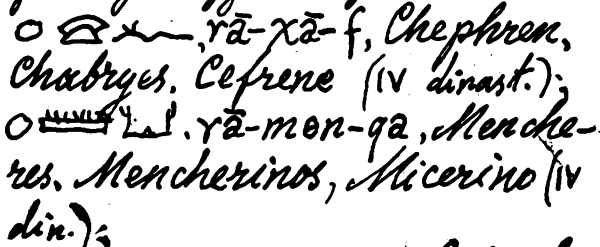 𓇳𓈍𓆑, rā-χā-f, Chephren,
Chabryes, Cefrene (IV dinast.);
𓇳𓏠𓂓. rā-men-qa, Menche-
res, Mencherinos, Micerino (IV
din.);